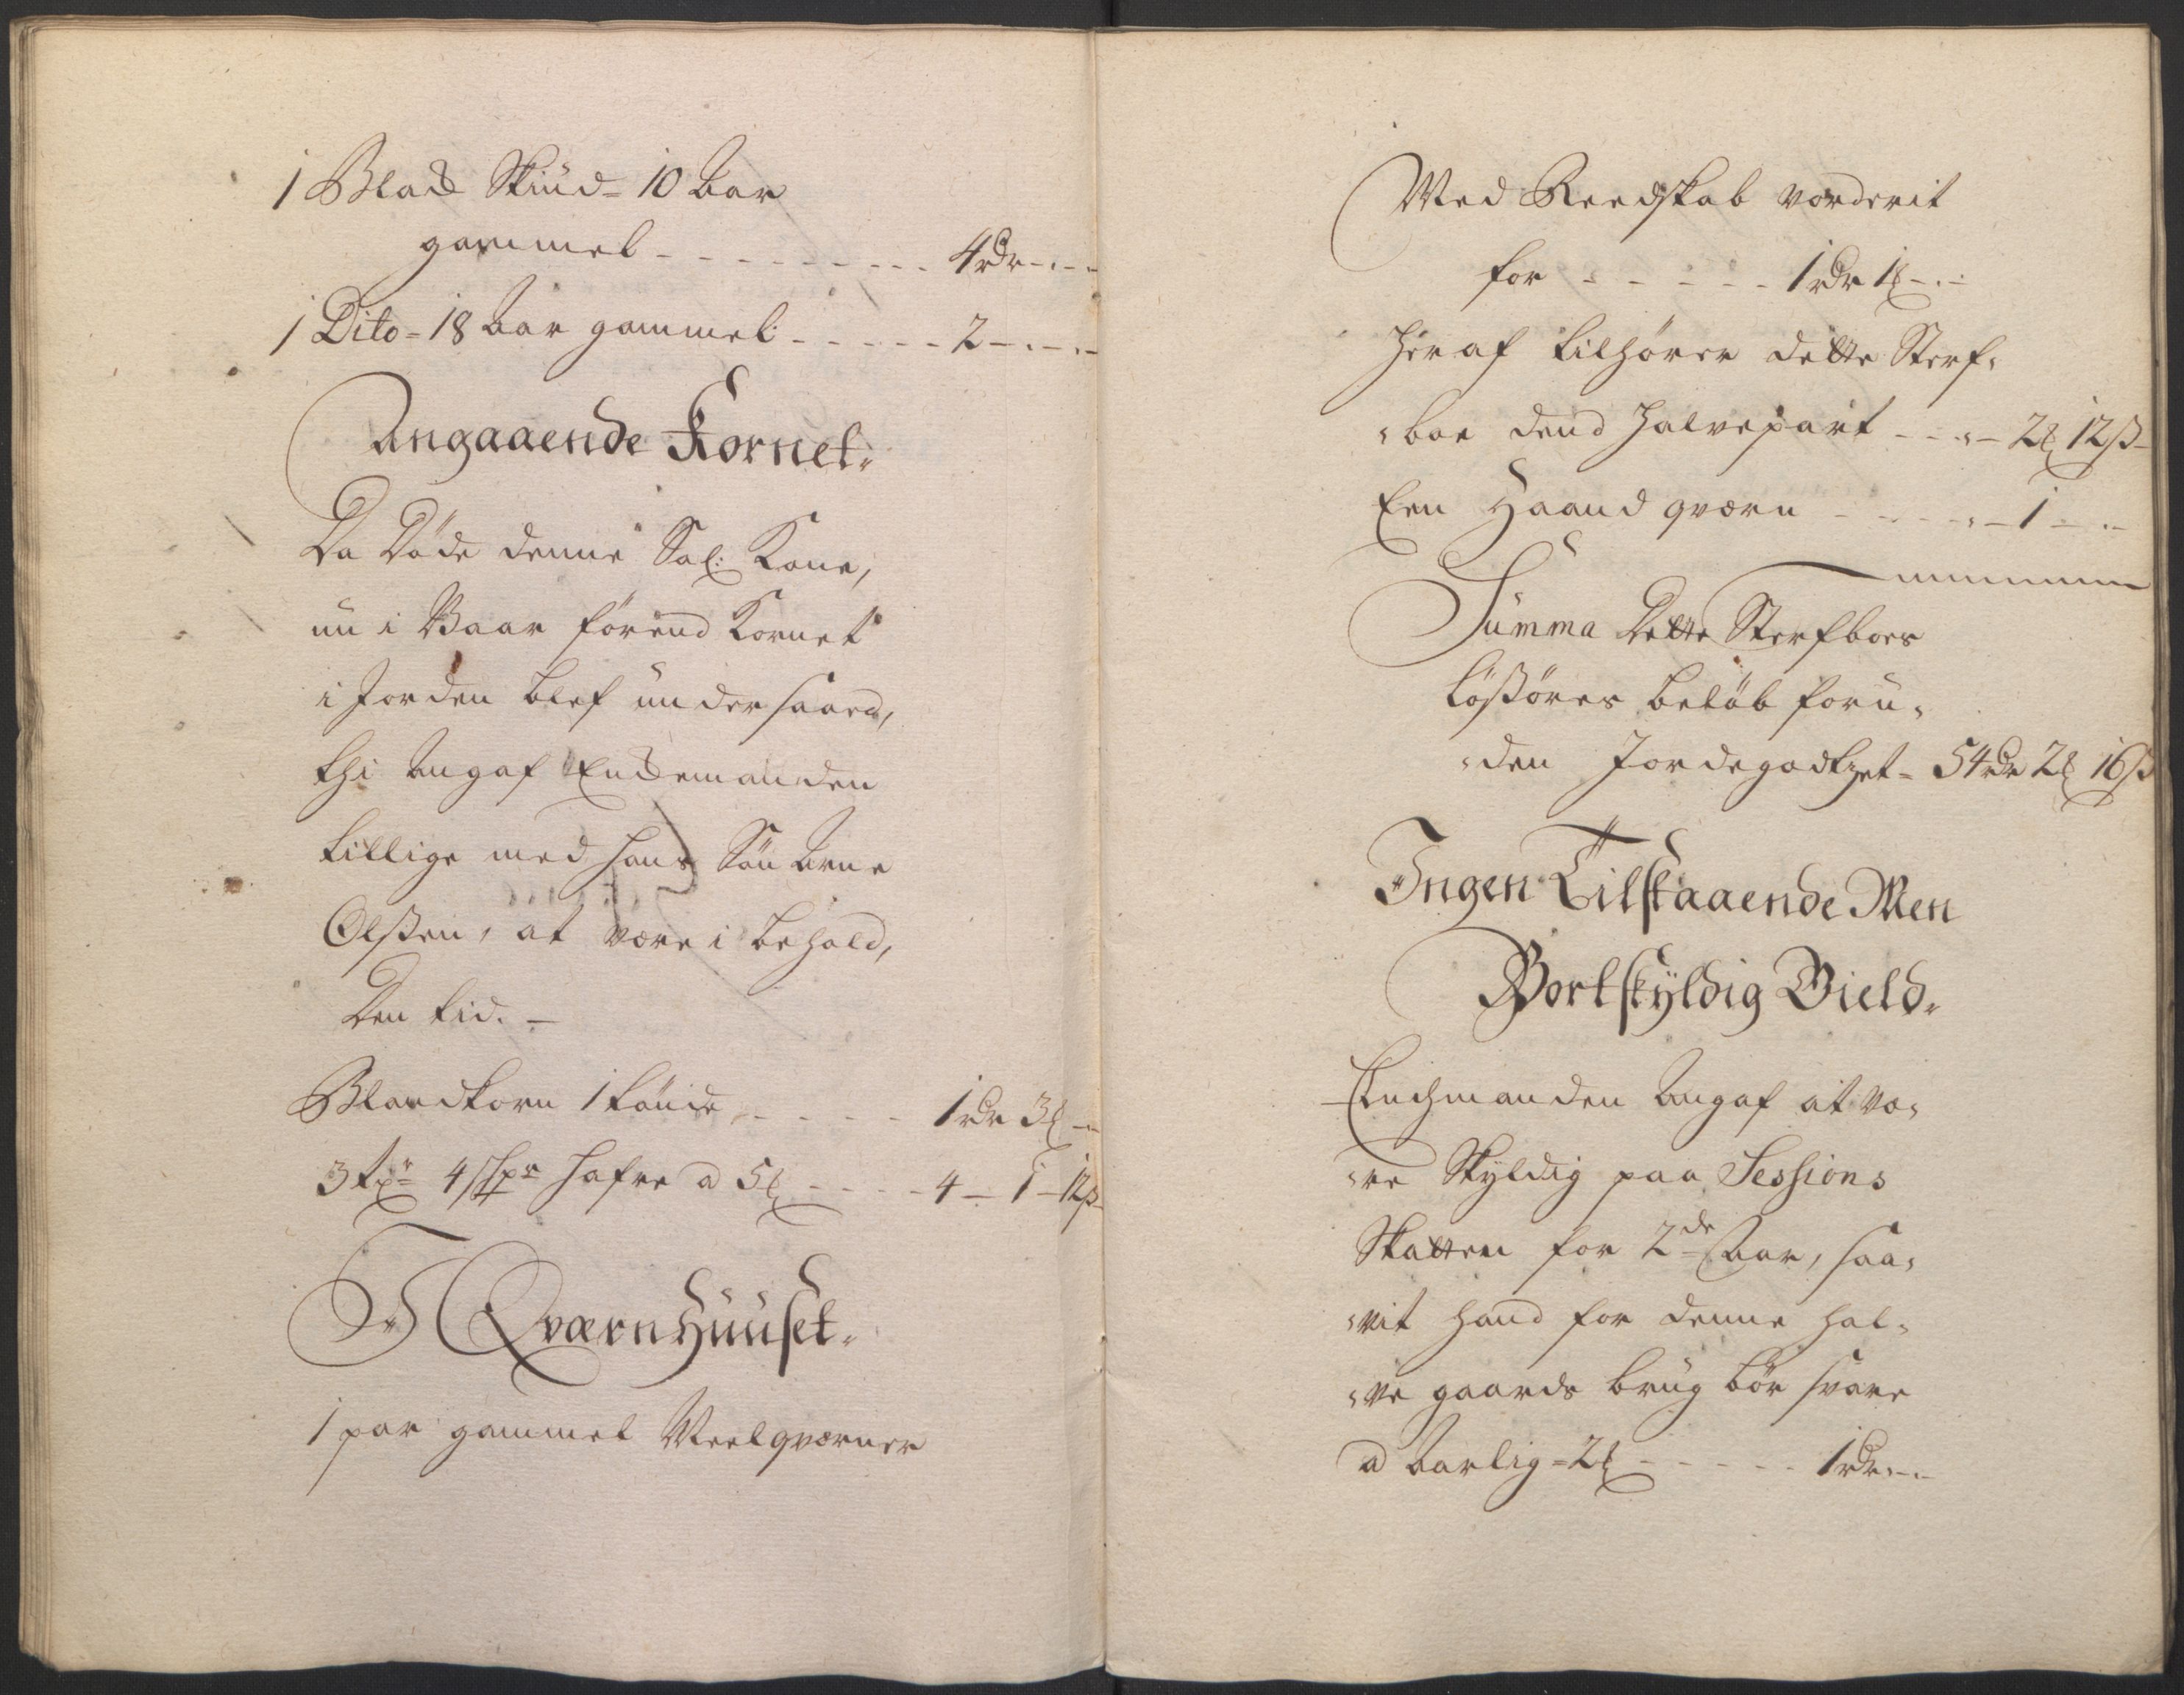 1 Black Skiud= 10 aar
gammel - - - - - - - - 4 rdr - - -
1 Dito= 18 aar gammel - - - - - 2 - . - . -
Angaaende Kornet.
Da Døde denne Sal: Kone,
nu i Vaar førend Kornet
i Jorden blef under saaed,
thi angaf Enckemanden
tillige med hans Søn Arne
Olßen, at være i behold,
den tid. -
Blandkorn 1 tønde - - - - - 1 rdr 3 ꝑ -
3 tr 4 shpr hafre a 5 ꝑ - - - - 4 - 1 - 12 ß
I Qværnhuuset.
1 par gammel Meelqværner
Med Reedskab vorderit
for - - - - - - 1 rdr 1 ꝑ - . -
her af tilhører dette Sterf=
=boe dend halvepart - - - - 2 ꝑ 12 ß
Een Haand qværn - - - - - - 1 - . -
Summa Dette Sterfboes
Løßøres beløb foru=
=den Jordegodtzet= 54 rdr 2 ꝑ 16 ß
Ingen Tilstaaende Men
Bortskyldig Gield.
Enchmanden angaf at væ=
=re Skyldig paa Sessions
Skatten for 2de aar, saa=
=vit hand for denne hal=
=ve gaards brug bør svare
a aarlig= 2 ꝑ - - - - - 1 rdr - . -